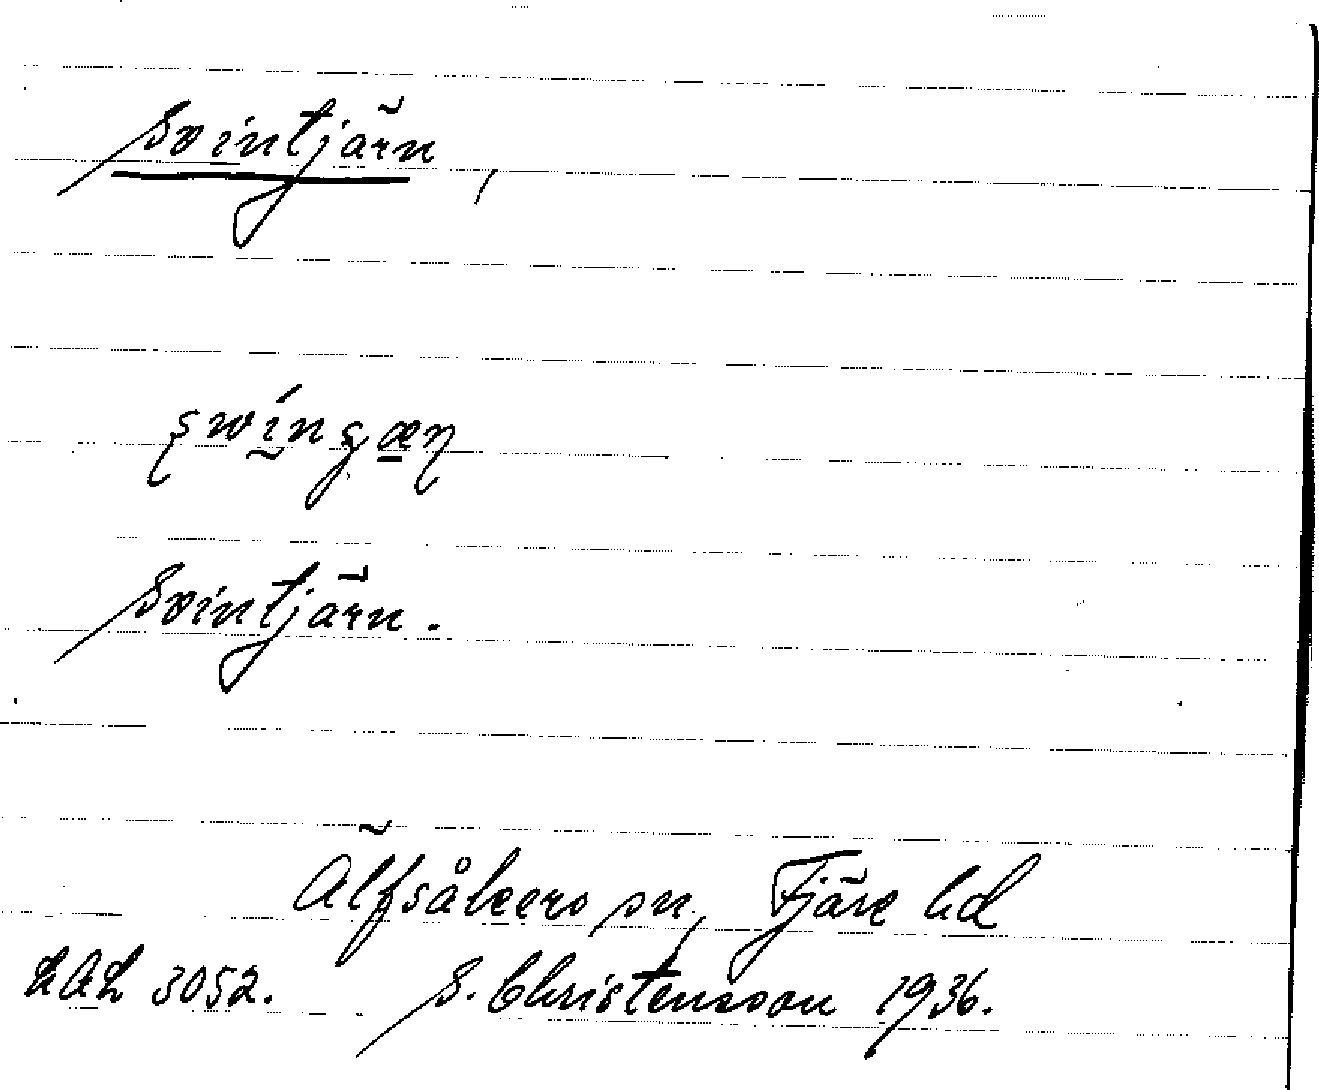 Svintjärn,
Svintjärn.
Älfsåkers sn, Fjäre hd
LAL 3052. S. Christensson 1936.